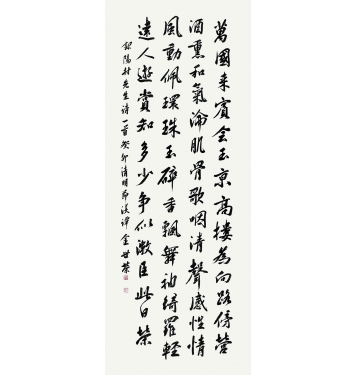 萬國来賓会玉京高樓為向路傍營
酒熏和氣淪肌骨歌咽清聲感性情
風動佩環珠玉碎香飄舞袖綺羅軽
遠人遊賞知多少争似微臣此日榮
録陽村先生诗一首癸卯清明節 金 榮